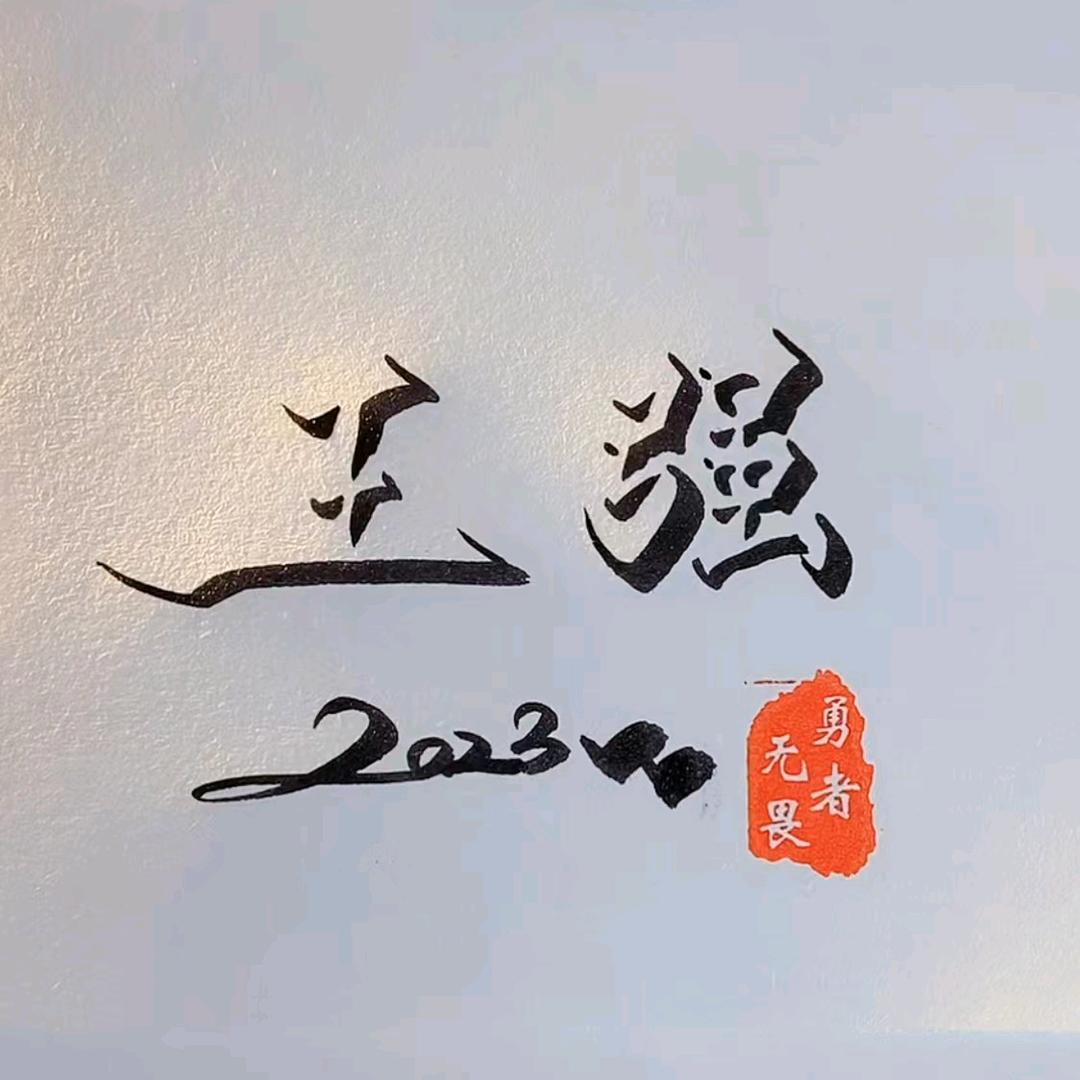 王强
2023
勇者
无畏